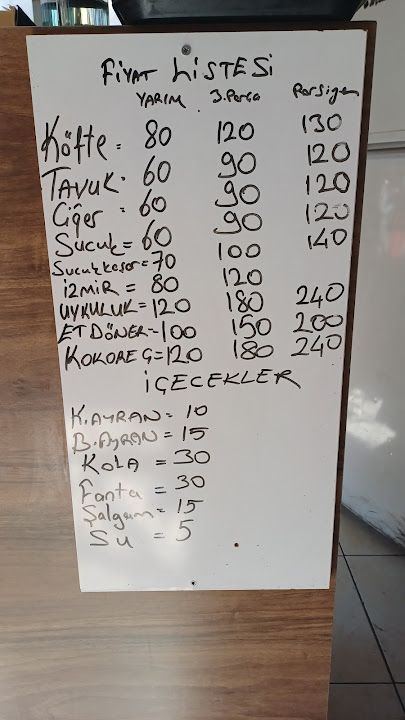 FİYAT LİSTESİ
YARIM 3.Parça Porsiyon
Köfte = 80 120 130
TAVUK = 60 90 120
Ciğer = 60 90 120
Sucuk = 60 90 120
Sucuk kaşar = 70 100 140
İZMİR = 80 120
UYKULUK = 120 180 240
ET DÖNER = 100 150 200
KOKOREÇ = 120 180 240
İÇECEKLER
K.AYRAN = 10
B.AYRAN = 15
KOLA = 30
Fanta = 30
Şalgam = 15
SU = 5